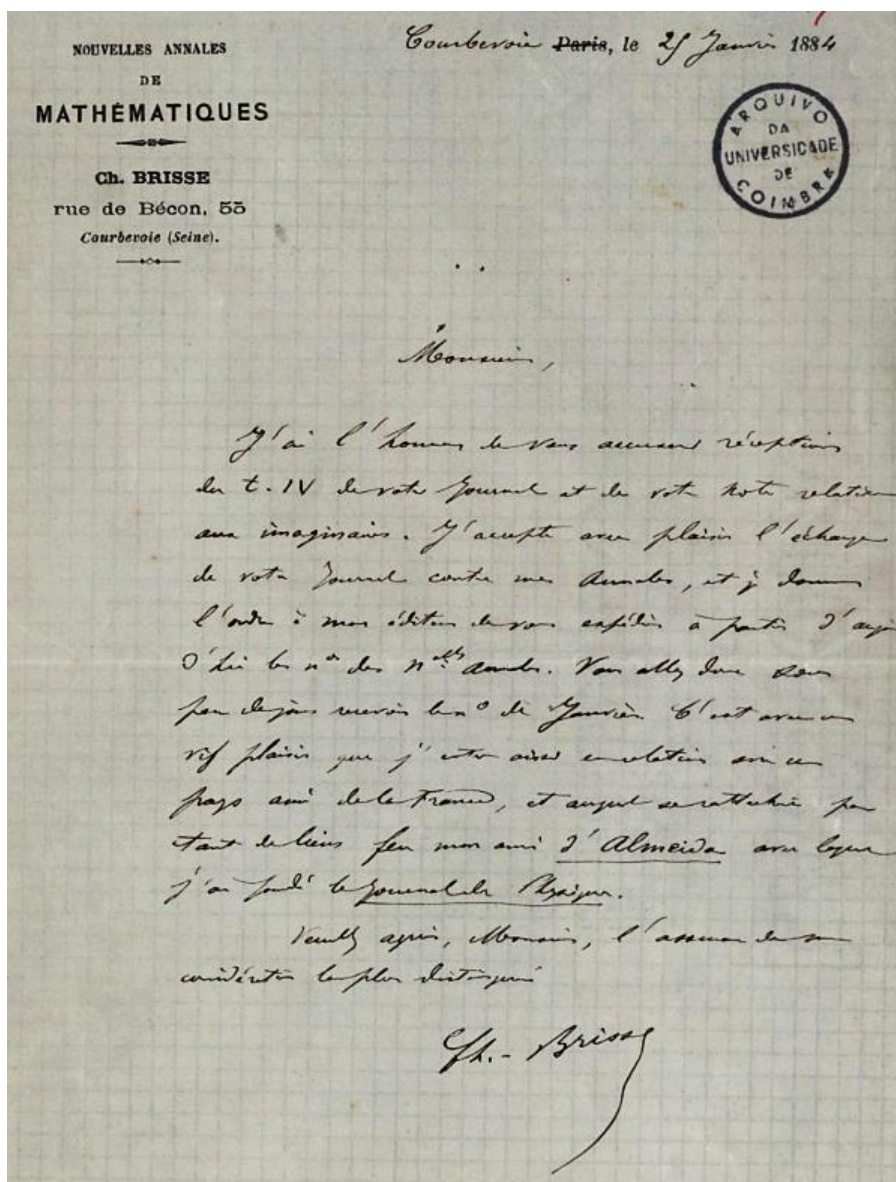 NOUVELLES ANNALES
DE
MATHÉMATIQUES
Ch. BRISSE
rue de Bécon, 55
Courbevoie (Seine).
Courbevoie Paris, le 25 Janvier 1884
ARQUIVO
DA
UNIVERSIDADE
DE
COIMBRA
Monsieur,
J'ai l'honneur de vous accuser réception
du t. IV de votre Journal et de votre Note relative
aux imaginaires. J'accepte avec plaisir l'échange
de votre Journal contre mes Annales, et je donne
l'ordre à mon éditeur de vous expédier à partir d'aujour
d'hui les nos des Nlles Annales. Vous allez donc sous
peu de jours recevoir le no de Janvier. C'est avec un
vif plaisir que j'entre ainsi en relation avec un
pays ami de la France, et auquel se rattachait par
tant de liens feu mon ami d'Almeida avec lequel
j'ai fondé le Journal de Physique.
Veuillez agréer, Monsieur, l'assurance de ma
considération la plus distinguée
Ch. Brisse